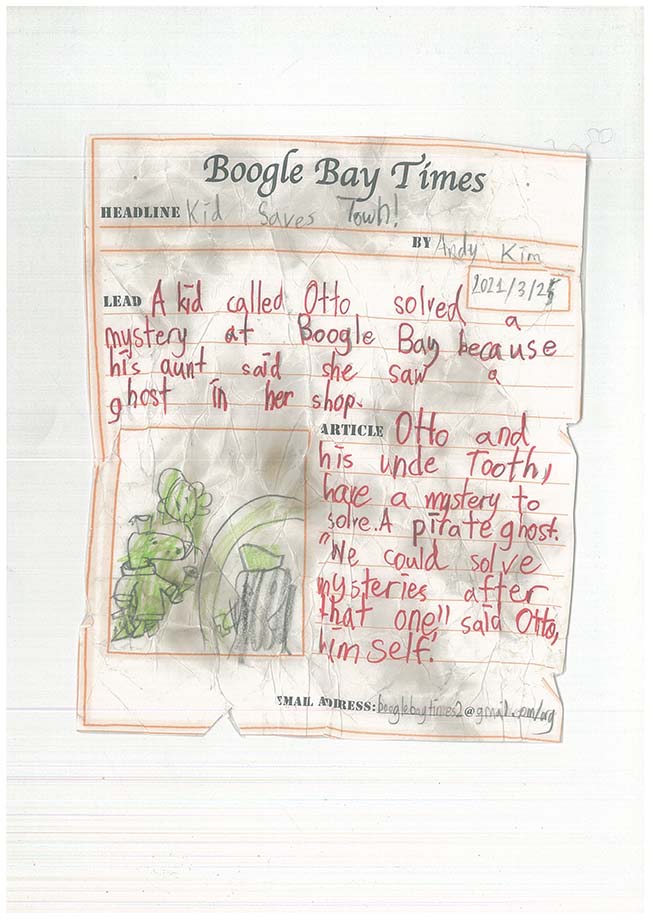 Boogle Bay Times
HEADLINE Kid Saves Town!
BY Andy Kim
2021/3/25
LEAD A kid called Otto solved a
mystery at Boogle Bay because
his aunt said she saw a
ghost in her shop.
ARTICLE Otto and
his uncle Tooth,
have a mystery to
solve. A pirate ghost.
"We could solve
mysteries after
that one" said Otto,
himself.
EMAIL ADDRESS: booglebaytimes2@gmail.com/org